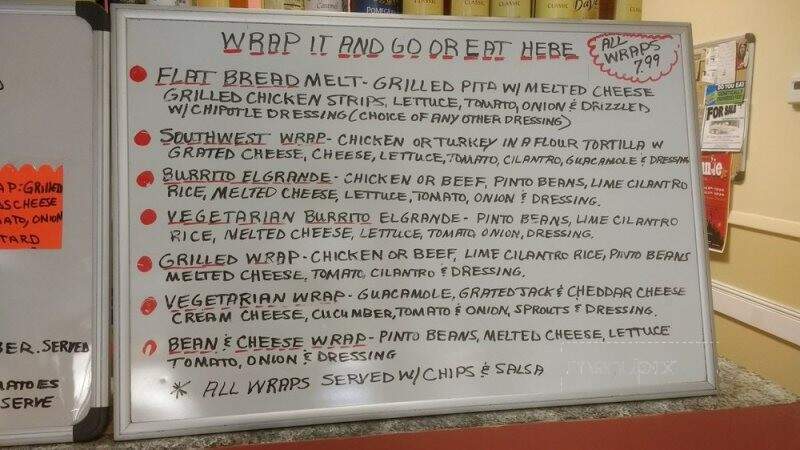 WRAP IT AND GO OR EAT HERE
ALL
WRAPS
7.99
FLAT BREAD MELT- GRILLED PITA W/ MELTED CHEESE
GRILLED CHICKEN STRIPS, LETTUCE, TOMATO, ONION & DRIZZLED
W/ CHIPOTLE DRESSING (CHOICE OF ANY OTHER DRESSING)
SOUTHWEST WRAP- CHICKEN OR TURKEY IN A FLOUR TORTILLA W
GRATED CHEESE, CHEESE, LETTUCE, TOMATO, CILANTRO, GUACAMOLE & DRESSING
BURRITO ELGRANDE- CHICKEN OR BEEF, PINTO BEANS, LIME CILANTRO
RICE, MELTED CHEESE, LETTUCE, TOMATO, ONION & DRESSING.
VEGETARIAN BURRITO ELGRANDE- PINTO BEANS, LIME CILANTRO
RICE, MELTED CHEESE, LETTUCE, TOMATO, ONION, DRESSING.
GRILLED WRAP- CHICKEN OR BEEF, LIME CILANTRO RICE, PINTO BEANS
MELTED CHEESE, TOMATO, CILANTRO & DRESSING.
VEGETARIAN WRAP- GUACAMOLE, GRATED JACK & CHEDDAR CHEESE
CREAM CHEESE, CUCUMBER, TOMATO & ONION, SPROUTS & DRESSING.
BEAN & CHEESE WRAP- PINTO BEANS, MELTED CHEESE, LETTUCE
TOMATO, ONION & DRESSING
* ALL WRAPS SERVED W/ CHIPS & SALSA
AP: GRILLED
SS CHEESE
ATO, ONION
TARD
BER. SERVED
MATOES
SERVE
CLASSIC
CLASSIC
CLASSIC
DO YOU EAT
FOR SALE